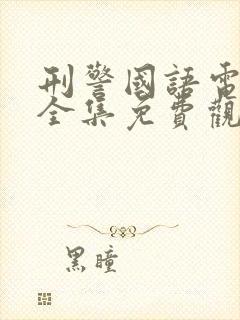 刑警國語電
全集免費觀
黑瞳